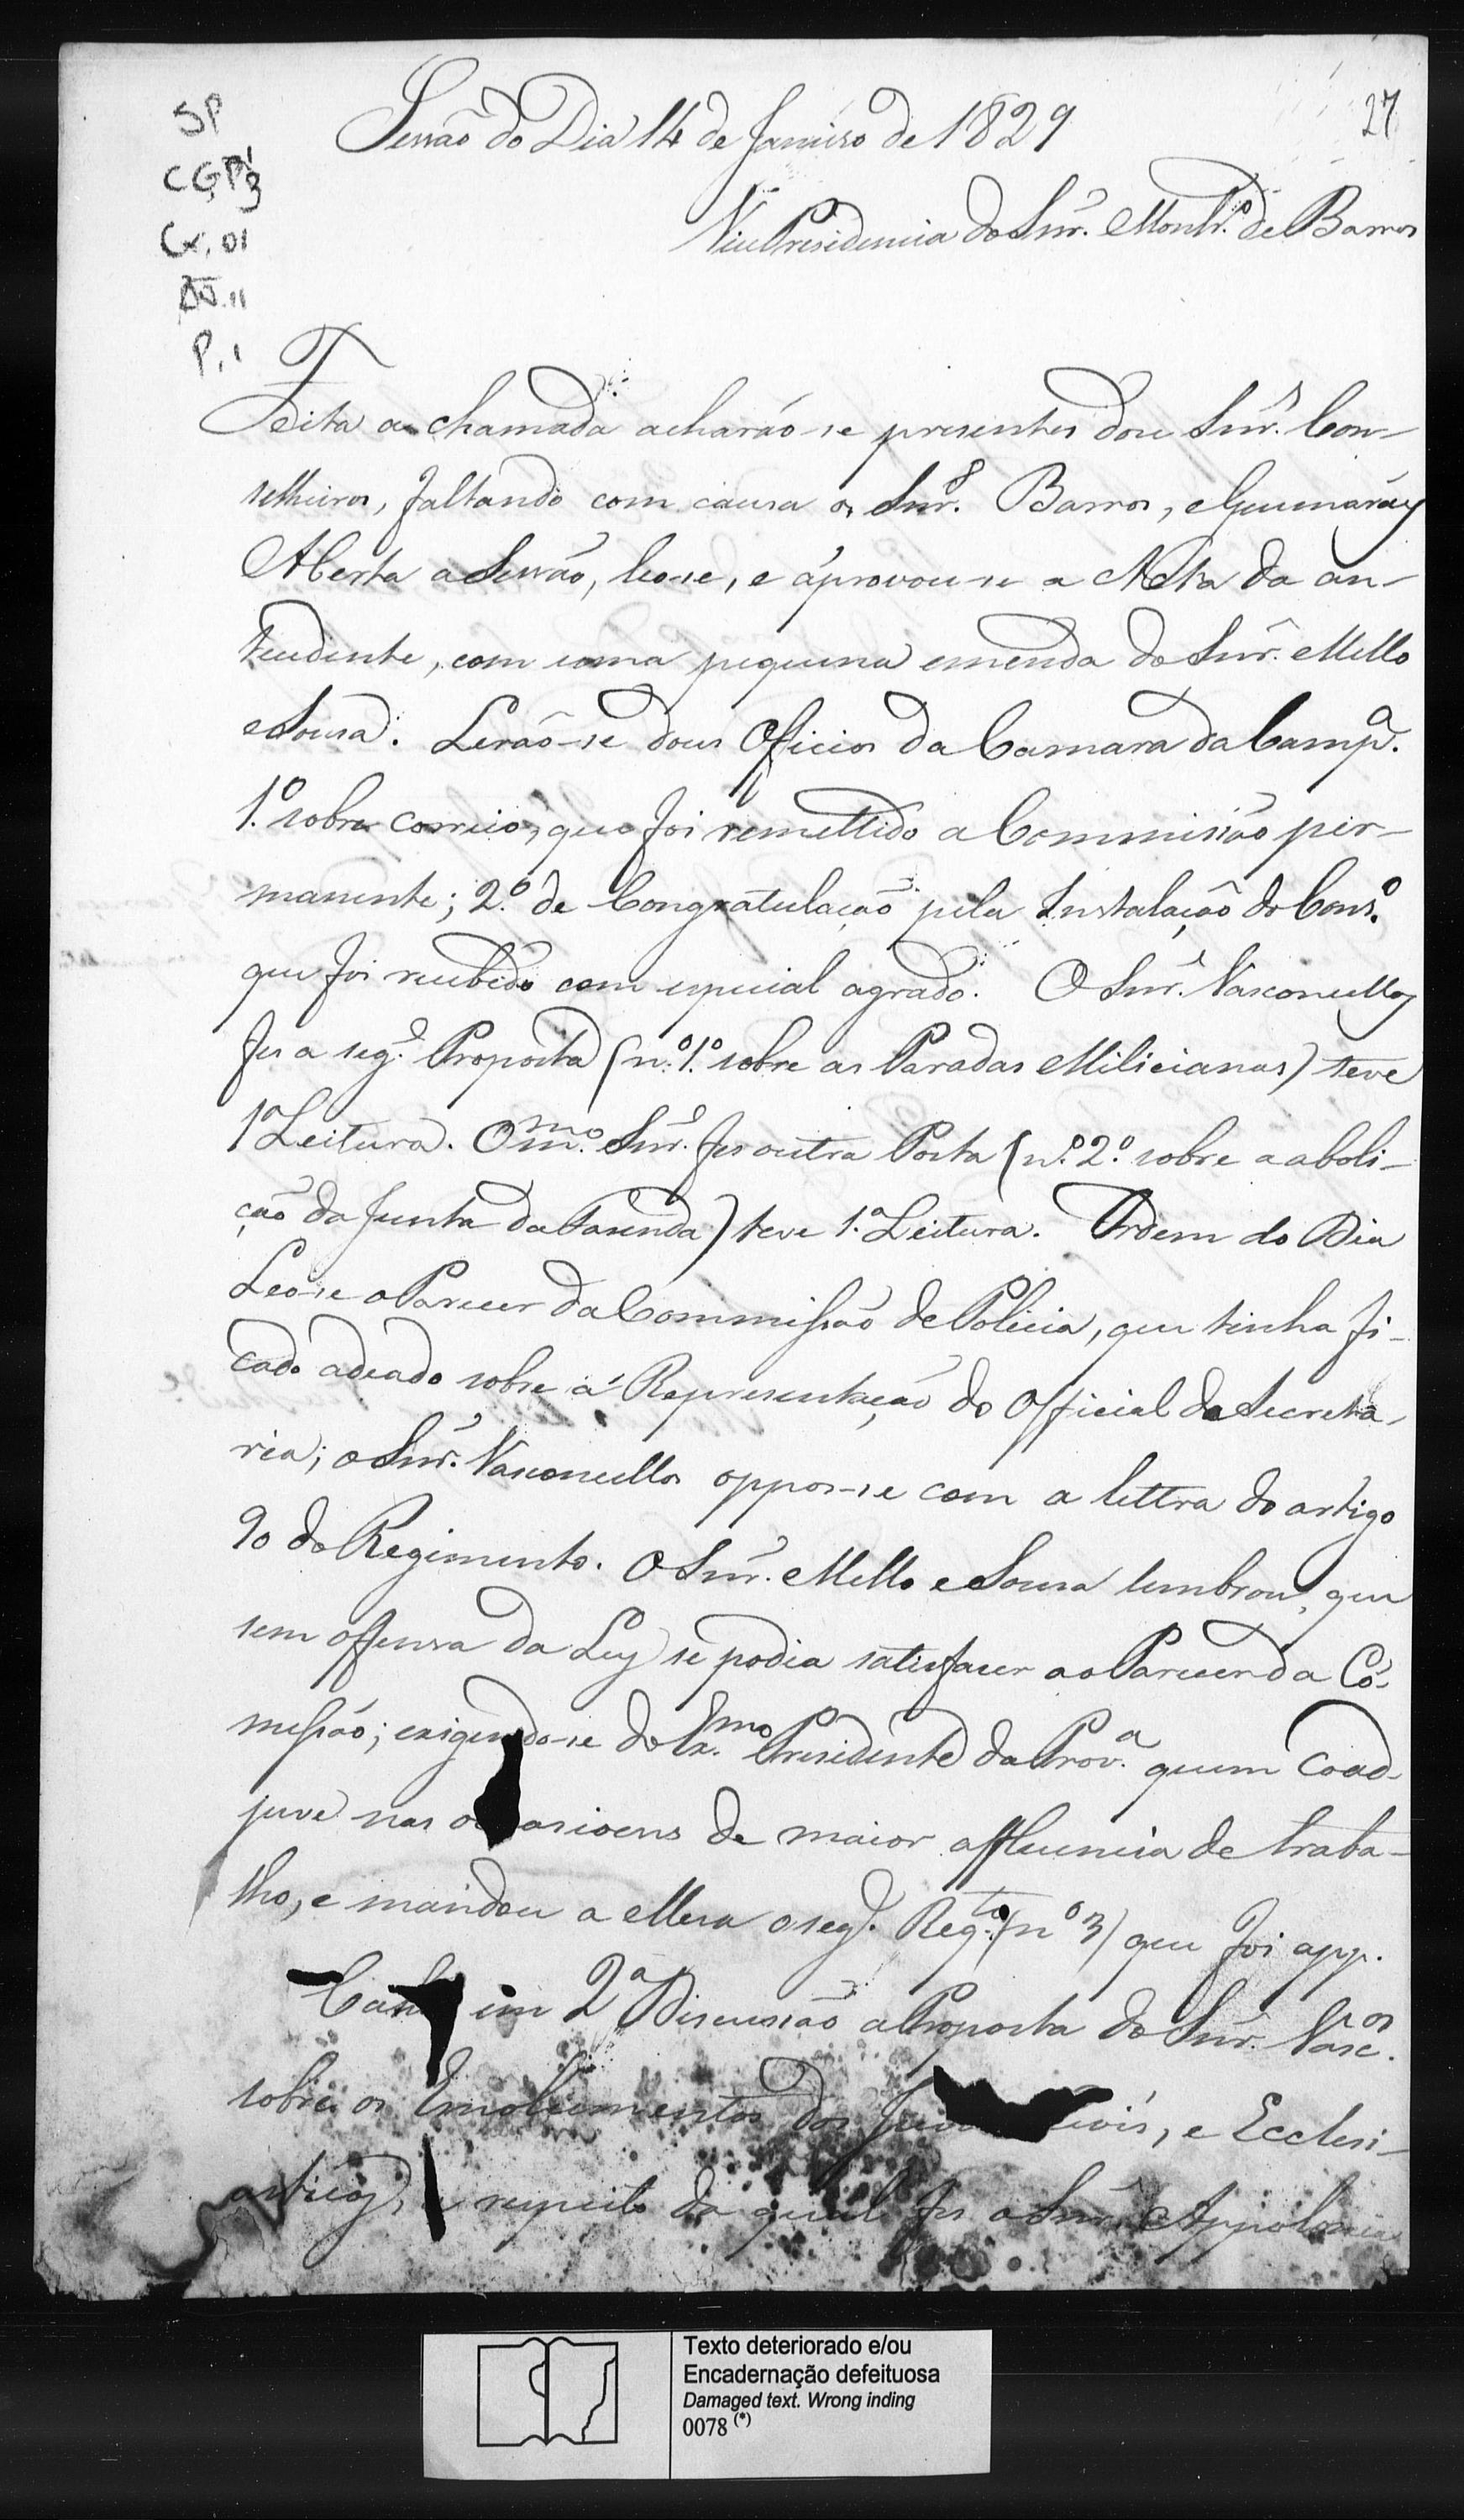 27
SP
CGP 3
Cx. 01
P. 1
Sessão do Dia 14 de Janeiro de 1829
Vice Presidencia do Snr. Montr.º de Barros
Feita a chamada acharão-se presentes doze Snr.s Con-
selheiros, faltando com causa os Snr.s Barros, e Guimarães
Aberta a Sessão, leo-se, e aprovou-se a Acta da an-
tecedente, com uma pequena emenda do Snr. Mello
e Sousa. Lerão-se dous Officios da Camara da Camp.a
1.º sobre correio, que foi remettido a Commissão per-
manente; 2.º de Congratulação pela Instalação do Cons.º
que foi recebido com especial agrado. O Snr. Vasconcellos
fes a seg.e Proposta (n.º 1.º sobre as Paradas Milicianas) teve
1.a Leitura. O m.mo Snr. fes outra Posta (n.º 2.º sobre a aboli-
ção da Junta da Fasenda) teve 1.a Leitura. Ordem do Dia
Leo-se o Parecer da Commissão de Policia, que tinha fi-
cado adeado sobre a Representação do Official da Secreta-
ria; o Snr. Vasconcellos oppos-se com a lettra do artigo
90 do Regimento. O Snr. Mello e Sousa lembrou, que
sem offensa da Ley se podia satisfacer ao Parecer da Cô-
missão; exigendo-se do Ex.mo Presidente da Prov.a quem coad-
juve nas occasioens de maior affluencia de traba-
lho, e mandou a Mesa o seg.e Req.to (n.º 3) que foi app.
em 2.a Discussão a Proposta do Snr. Vasc.os
sobre os Emolumentos dos Civis, e Ecclesi-
asticos, a respeito da qual fes o Snr. Appolonio
Texto deteriorado e/ou
Encadernação defeituosa
Damaged text. Wrong inding
0078 (*)